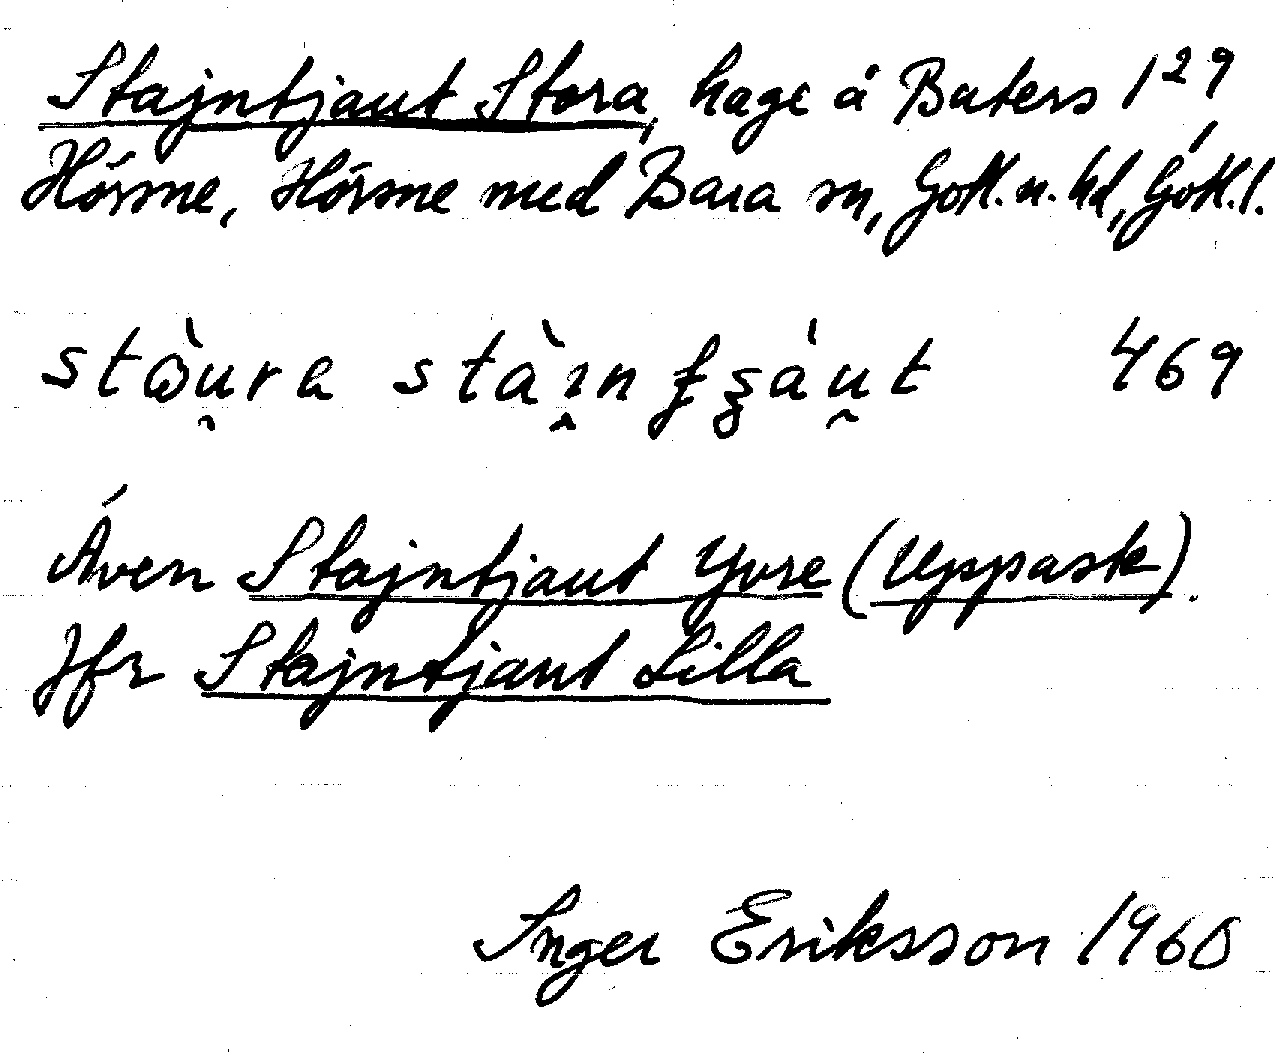 Stajntjaut Stora, hage å Buters 1²⁹
Hörsne, Hörsne med Bara sn, Gotl. n. hd, Gotl. l.
stòu̯ra stài̯n ɟʒáu̯t 469
Även Stajntjaut Yvre (Uppask).
Jfr Stajntjaut Lilla
Inger Eriksson 1960